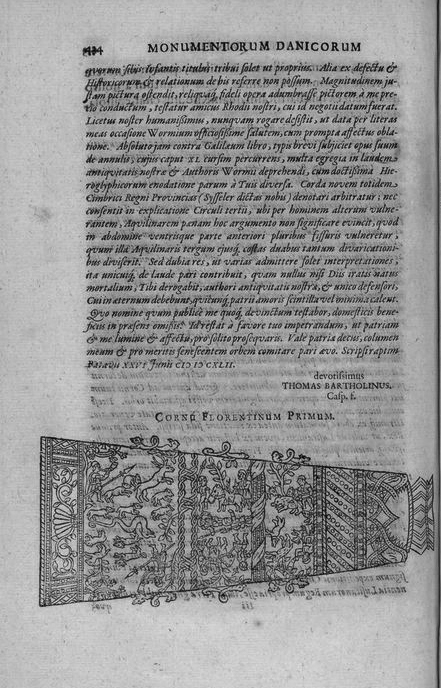 434 MONUMENTORUM DANICORUM
quorum sibi Infantis titulus tribui solet ut proprius. Alia ex defectu &
Historicorum & relationum de his referre non possum. Magnitudinem ju-
stam pictura ostendit, reliquaq, fideli opera adumbrasse pictorem à me pre-
tio conductum, testatur amicus Rhodii nostri, cui id negotii datum fuerat.
Licetus noster humanissimus, nunquam rogare desistit, ut data per literas
meas occasione Wormium officiosissime salutem, cum prompta affectus obla-
tione. Absoluto jam contra Galilæum libro, typis brevi subjiciet opus suum
de annulis, cujus caput XL cursim percurrens, multa egregia in laudem
antiqvitatis nostræ & Authoris Wormii deprehendi, cum doctissima Hie-
roglyphicorum enodatione parum à Tuis diversa. Corda novem totidem
Cimbrici Regni Provincias (Sysseler dictas nobis) denotari arbitratur; nec
consentit in explicatione Circuli tertii, ubi per hominem alterum vulne-
rantem, Aqvilinarem pœnam hoc argumento non significare evincit, qvod
in abdomine ventrisque parte anteriori pluribus fissuris vulneretur,
qvum illa Aqvilinaris tergum ejusq, costas duabus tantum divaricationi-
bus diviserit. Sed dubia res, ut varias admittere solet interpretationes,
ita unicuiq, de laude pari contribuit, qvam nullus nisi Diis iratis natus
mortalium, Tibi derogabit, authori antiqvitatis nostræ, & unico defensori,
Cui in æternum debebunt, qvicunq, patrii amoris scintilla vel minima caleut.
Qvo nomine qvum publice me quoq, devinctum testabor, domesticis bene-
ficiis in præsens omissis. Id restat à favore tuo impetrandum, ut patriam
& me lumine & affectu, pro solito prosequaris. Vale patriæ decus, columen
meum & pro meritis senescentem orbem comitare pari ævo. Scripsi raptim
Patavii XXVI Junii CIƆ IƆ CXLII.
devotissimus
THOMAS BARTHOLINUS,
Casp. f.
CORNU FLORENTINUM PRIMUM.